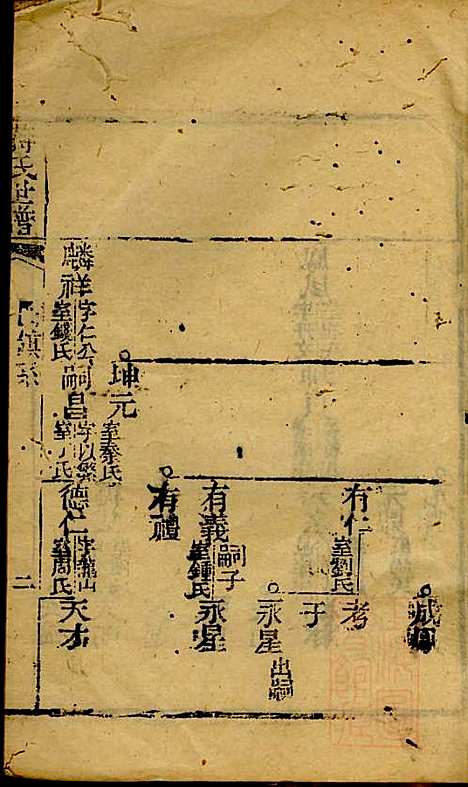 成
有仁 室劉氏 考
子
永星 出嗣
有義 室鍾氏 嗣子 永星
有禮
坤元 室秦氏
麟祥 字仁公 室錢氏 嗣昌 字以繁 室丁氏 德仁 字龍山 室周氏 天才
氏世譜
二